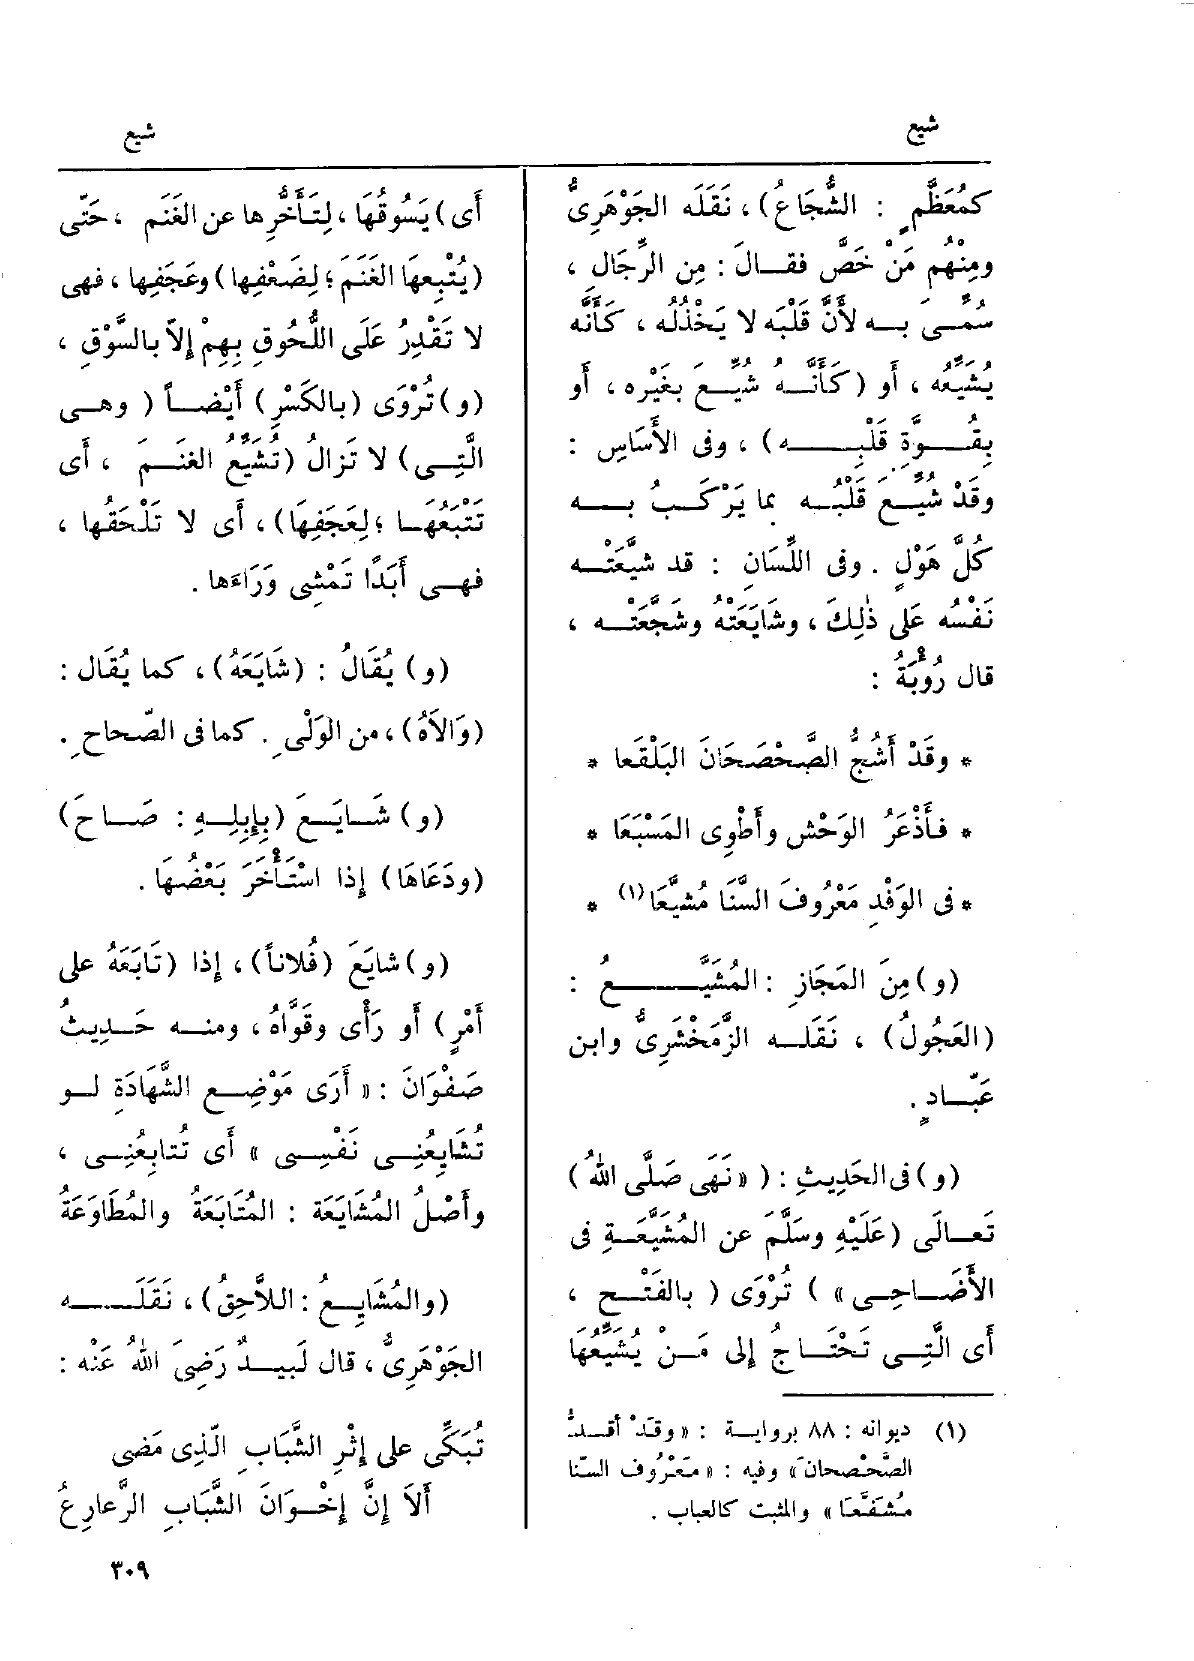 شيع
شيع
كمُعَظَّمٍ : الشُّجَاعُ) ، نَقَلَه الجَوْهَرِىُّ
ومِنْهُم مَنْ خَصَّ فقـال : مِن الرِّجالِ ،
سُمِّـىَ بـه لأَنَّ قَلْبَه لا يَخْذُلُه ، كَأَنَّه
يُشَيِّعُه ، أَو (كَأَنَّـه شُيِّـعَ بغَيْرِه ، أَو
بِقُـوَّةِ قَلْبِـه) ، وفى الأَسَاسِ :
وقَدْ شُيِّـعَ قَلْبُـه بما يَرْكَـبُ بـه
كُلَّ هَوْلٍ . وفى اللِّسَانِ : قد شيَّعَتْـه
نَفْسُه عَلَى ذٰلِكَ ، وشَايَعَتْهُ وشَجَّعَتْـه ،
قال رُؤْبَةُ :
* وقَدْ أَشُجُّ الصَّحْصَحَانَ البَلْقَعا *
* فـأَذْعَرُ الوَحْشَ وأَطْوِى المَسْبَعَا *
* فى الوَفْدِ مَعْرُوفَ السَّنَا مُشَيَّعَا (١) *
(و) مِنَ المَجَازِ : المُشَيَّـعُ :
(العَجُولُ) ، نَقَلَـه الزَّمَخْشَرِىُّ وابن
عَبّـادٍ .
(و) فى الحَدِيثِ : ( « نَهَى صَلَّى اللهُ)
تَعـالَى (عَلَيْهِ وسَلَّمَ عن المُشَيَّعَـةِ فى
الأَضَـاحِـى » ) تُرْوَى ( بالفَتْـح ،
أَى الَّتِـى تَحْتَـاجُ إلى مَـنْ يُشَيِّعُهَا
(١) ديوانه : ٨٨ بروايـة : « وقَدْ أقـدُّ
الصَّحْصحانَ » وفيه : « مَعْرُوف السنّا
مُشَفَّعَا » والمثبت كالعباب .
أَى) يَسُوقُهَا ، لِتَـأَخُّرِها عن الغَنَم ، حَتّى
(يُتْبِعهَا الغَنَمَ ؛ لِضَعْفِها) وعَجَفِها ، فهى
لا تَقْدِرُ عَلَى اللُّحُوقِ بِهِمْ إلاّ بالسَّوْقِ ،
(و) تُرْوَى (بالكَسْرِ) أَيْضـاً ( وهـى
الَّتِـى) لا تَزالُ (تُشَيِّعُ الغنَـمَ ، أَى
تَتْبَعُهَـا ؛ لِعَجَفِهَا) ، أَى لا تَلْحَقُها ،
فهـى أَبَدًا تَمْشِى وَرَاءَها .
(و) يُقَالُ : (شَايَعَهُ) ، كما يُقَال :
(وَالاَهُ) ، من الوَلْىِ . كما فى الصّحاحِ .
(و) شَـايَـعَ (بِإبِلِـهِ : صَـاحَ)
(ودَعَاهَا) إذا اسْتَـأْخَرَ بَعْضُهَا .
(و) شايَعَ (فُلاناً) ، إذا (تابَعَهُ على
أَمْرٍ) أَو رَأْى وقَوَّاهُ ، ومنـه حَـدِيثُ
صَفْوَانَ : « أَرَى مَوْضِـعِ الشَّهَادَةِ لـو
تُشَايِعُنِـى نَفْسِـى » أَى تُتابِعُنِـى ،
وأَصْلُ المُشَايَعَة : المُتَابَعَةُ والمُطَاوَعَةُ
(والمُشَايِـعُ : اللاَّحِقُ) ، نَقَلَـه
الجَوْهَرِىُّ ، قال لَبيـدٌ رَضِىَ اللهُ عَنْه :
تُبَكِّى على إثْرِ الشَّبَابِ الَّذِى مَضى
أَلاَ إنَّ إخْـوَانَ الشَّبَابِ الرَّعارِعُ
٣٠٩